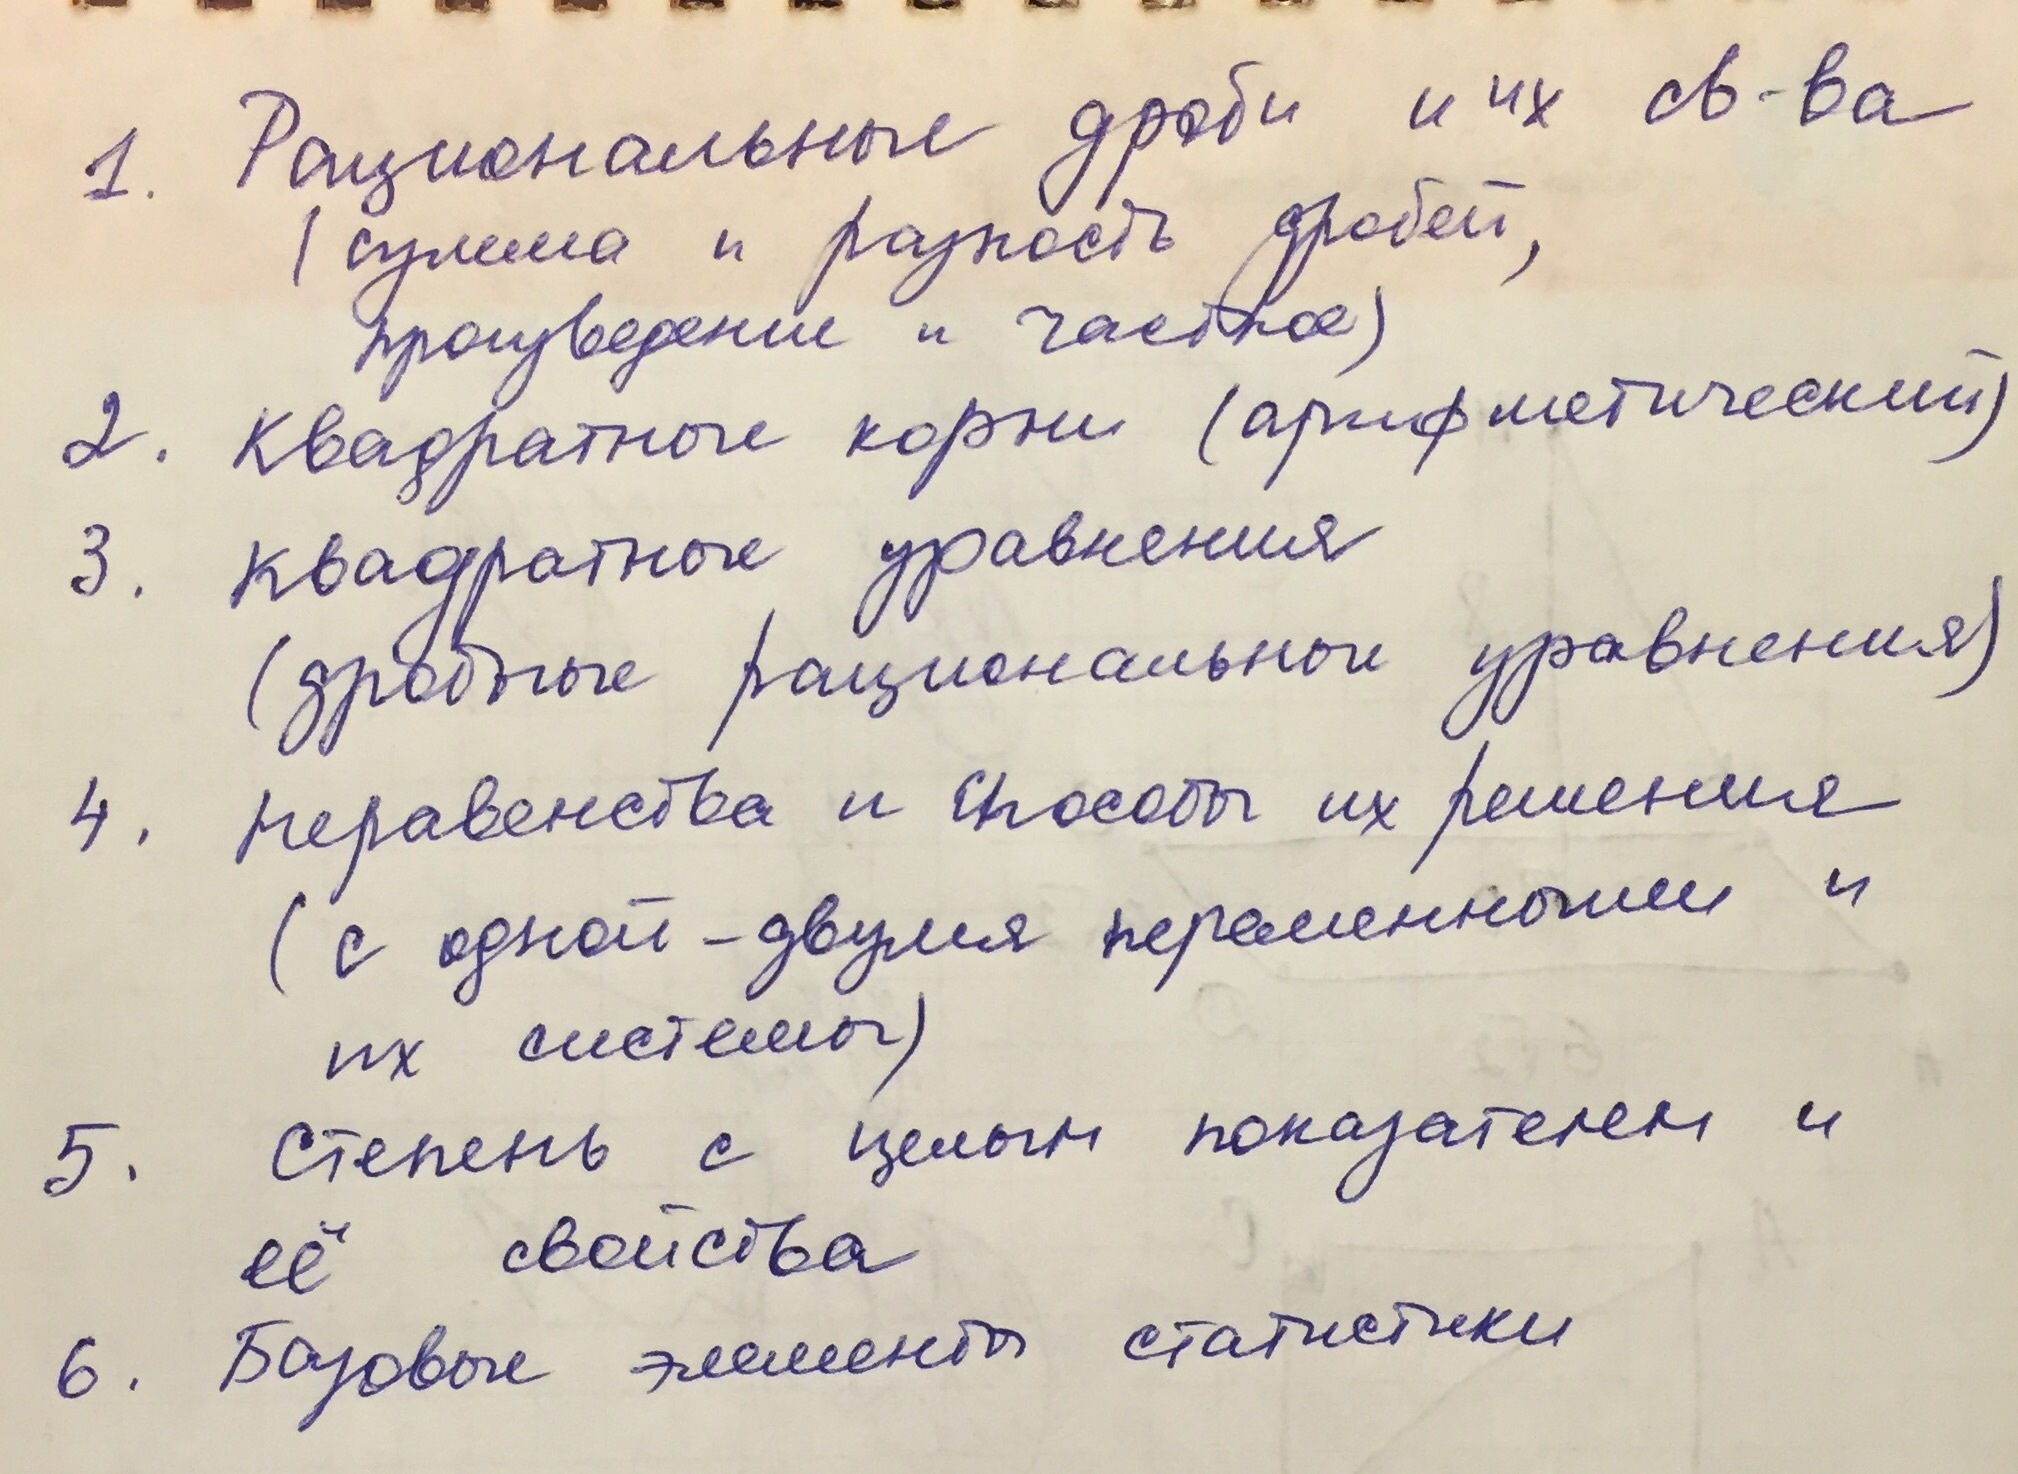 1. Рациональные дроби и их св-ва
(сумма и разность дробей,
произведение и частное)
2. Квадратные корни (арифметический)
3. Квадратные уравнения
(дробные рациональные уравнения)
4. Неравенства и способы их решения
(с одной-двумя переменными и
их системы)
5. Степень с целым показателем и
её свойства
6. Базовые элементы статистики